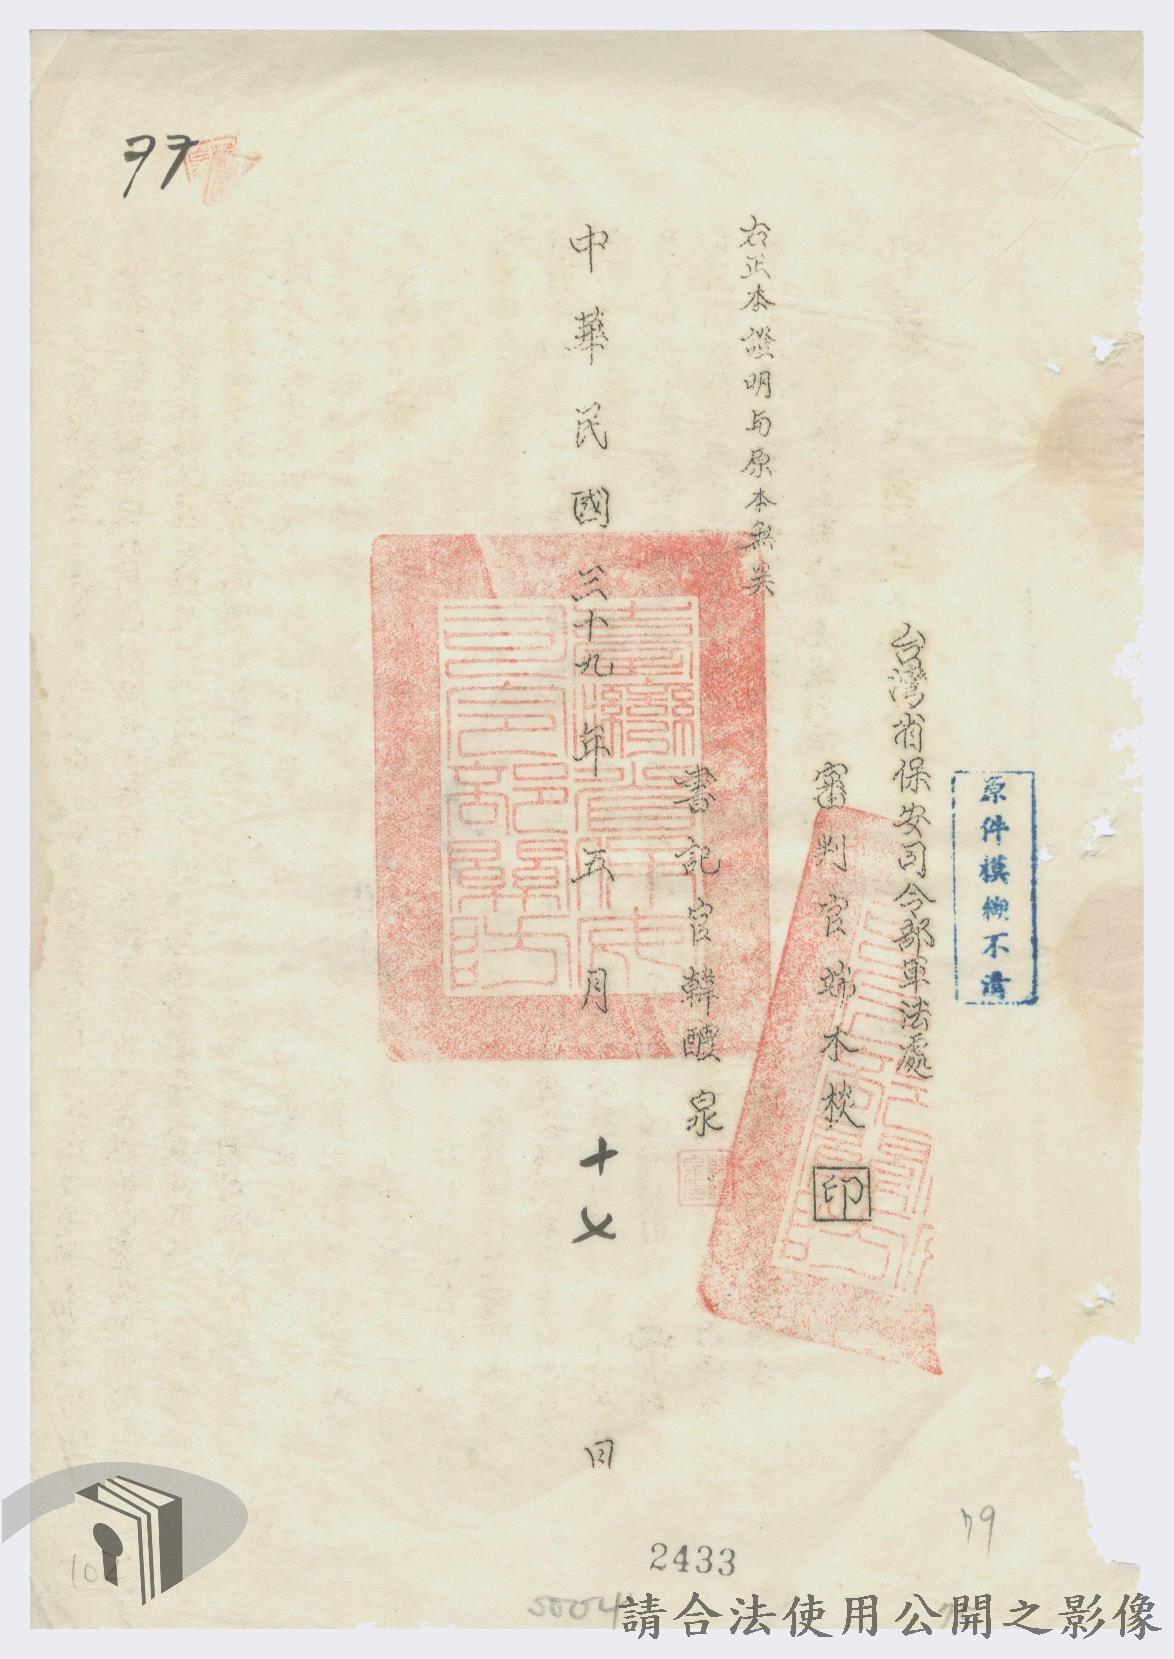 台灣省保安司令部軍法處
審判官端木棪 印
右正本證明与原本無異
書記官韓醴泉
中華民國三十九年五月十七日
原件模糊不清
臺灣省保安司令部軍法
2433
50041
79
請合法使用公開之影像